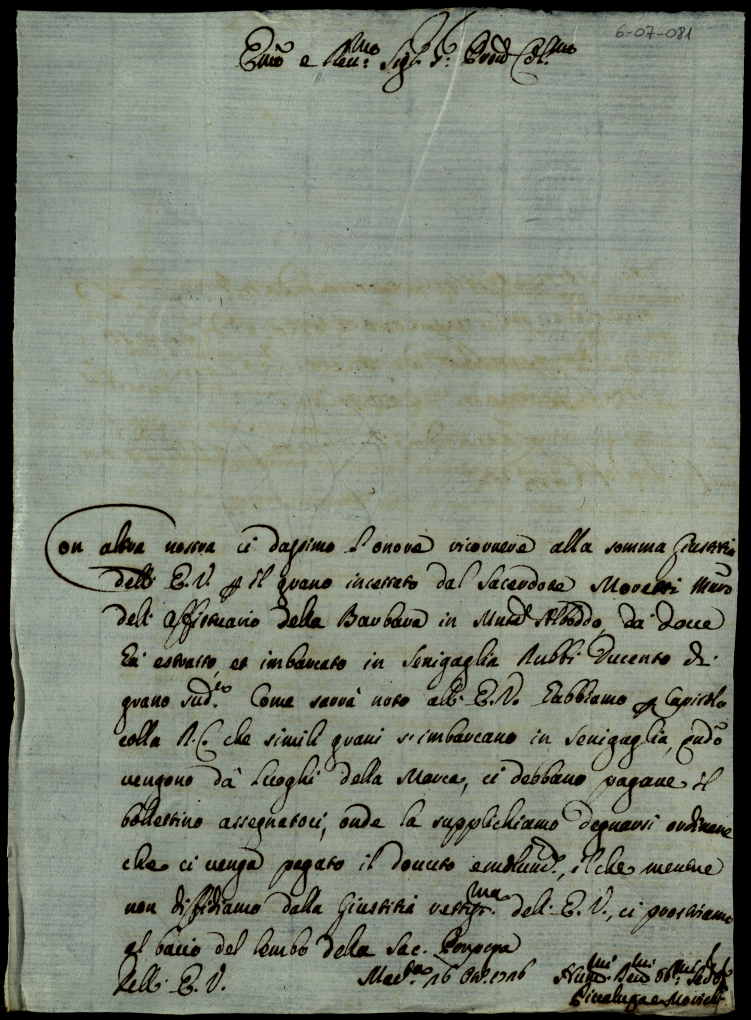 6-07-081
Em̃o e Reu.mo Sig.r Sig.r Pron Col.mo
Con altra nostra ci dassimo l'onore ricorrere alla somma Giustitia
dell' E. V. p il grano incettato dal Sacerdote Moretti
dell' affittuario della Barbara in Albodo, da doue
hà estratto, et imbarcato in Senigaglia Rubbi Ducento di
grano sud.to Come sarrà noto all' E. V. habbiamo p Capitolo
colla R. C. che simili grani s'imbarcano in Senigaglia, qudo
uengono dà luoghi della Marca, ci debbano pagare il
bollettino assegnatoci, onde la supplichiamo degnarsi ordinare
che ci uenga pagato il douuto emolum.to, il che mentre
non diffidiamo dalla Giustitia rettis.ma dell' E. V., ci prostriamo
al bacio del lembo della Sac. Porpora
Dell' E. V. Mac.ta 16 1716 Hum.mi Deu.mi Obl.mi